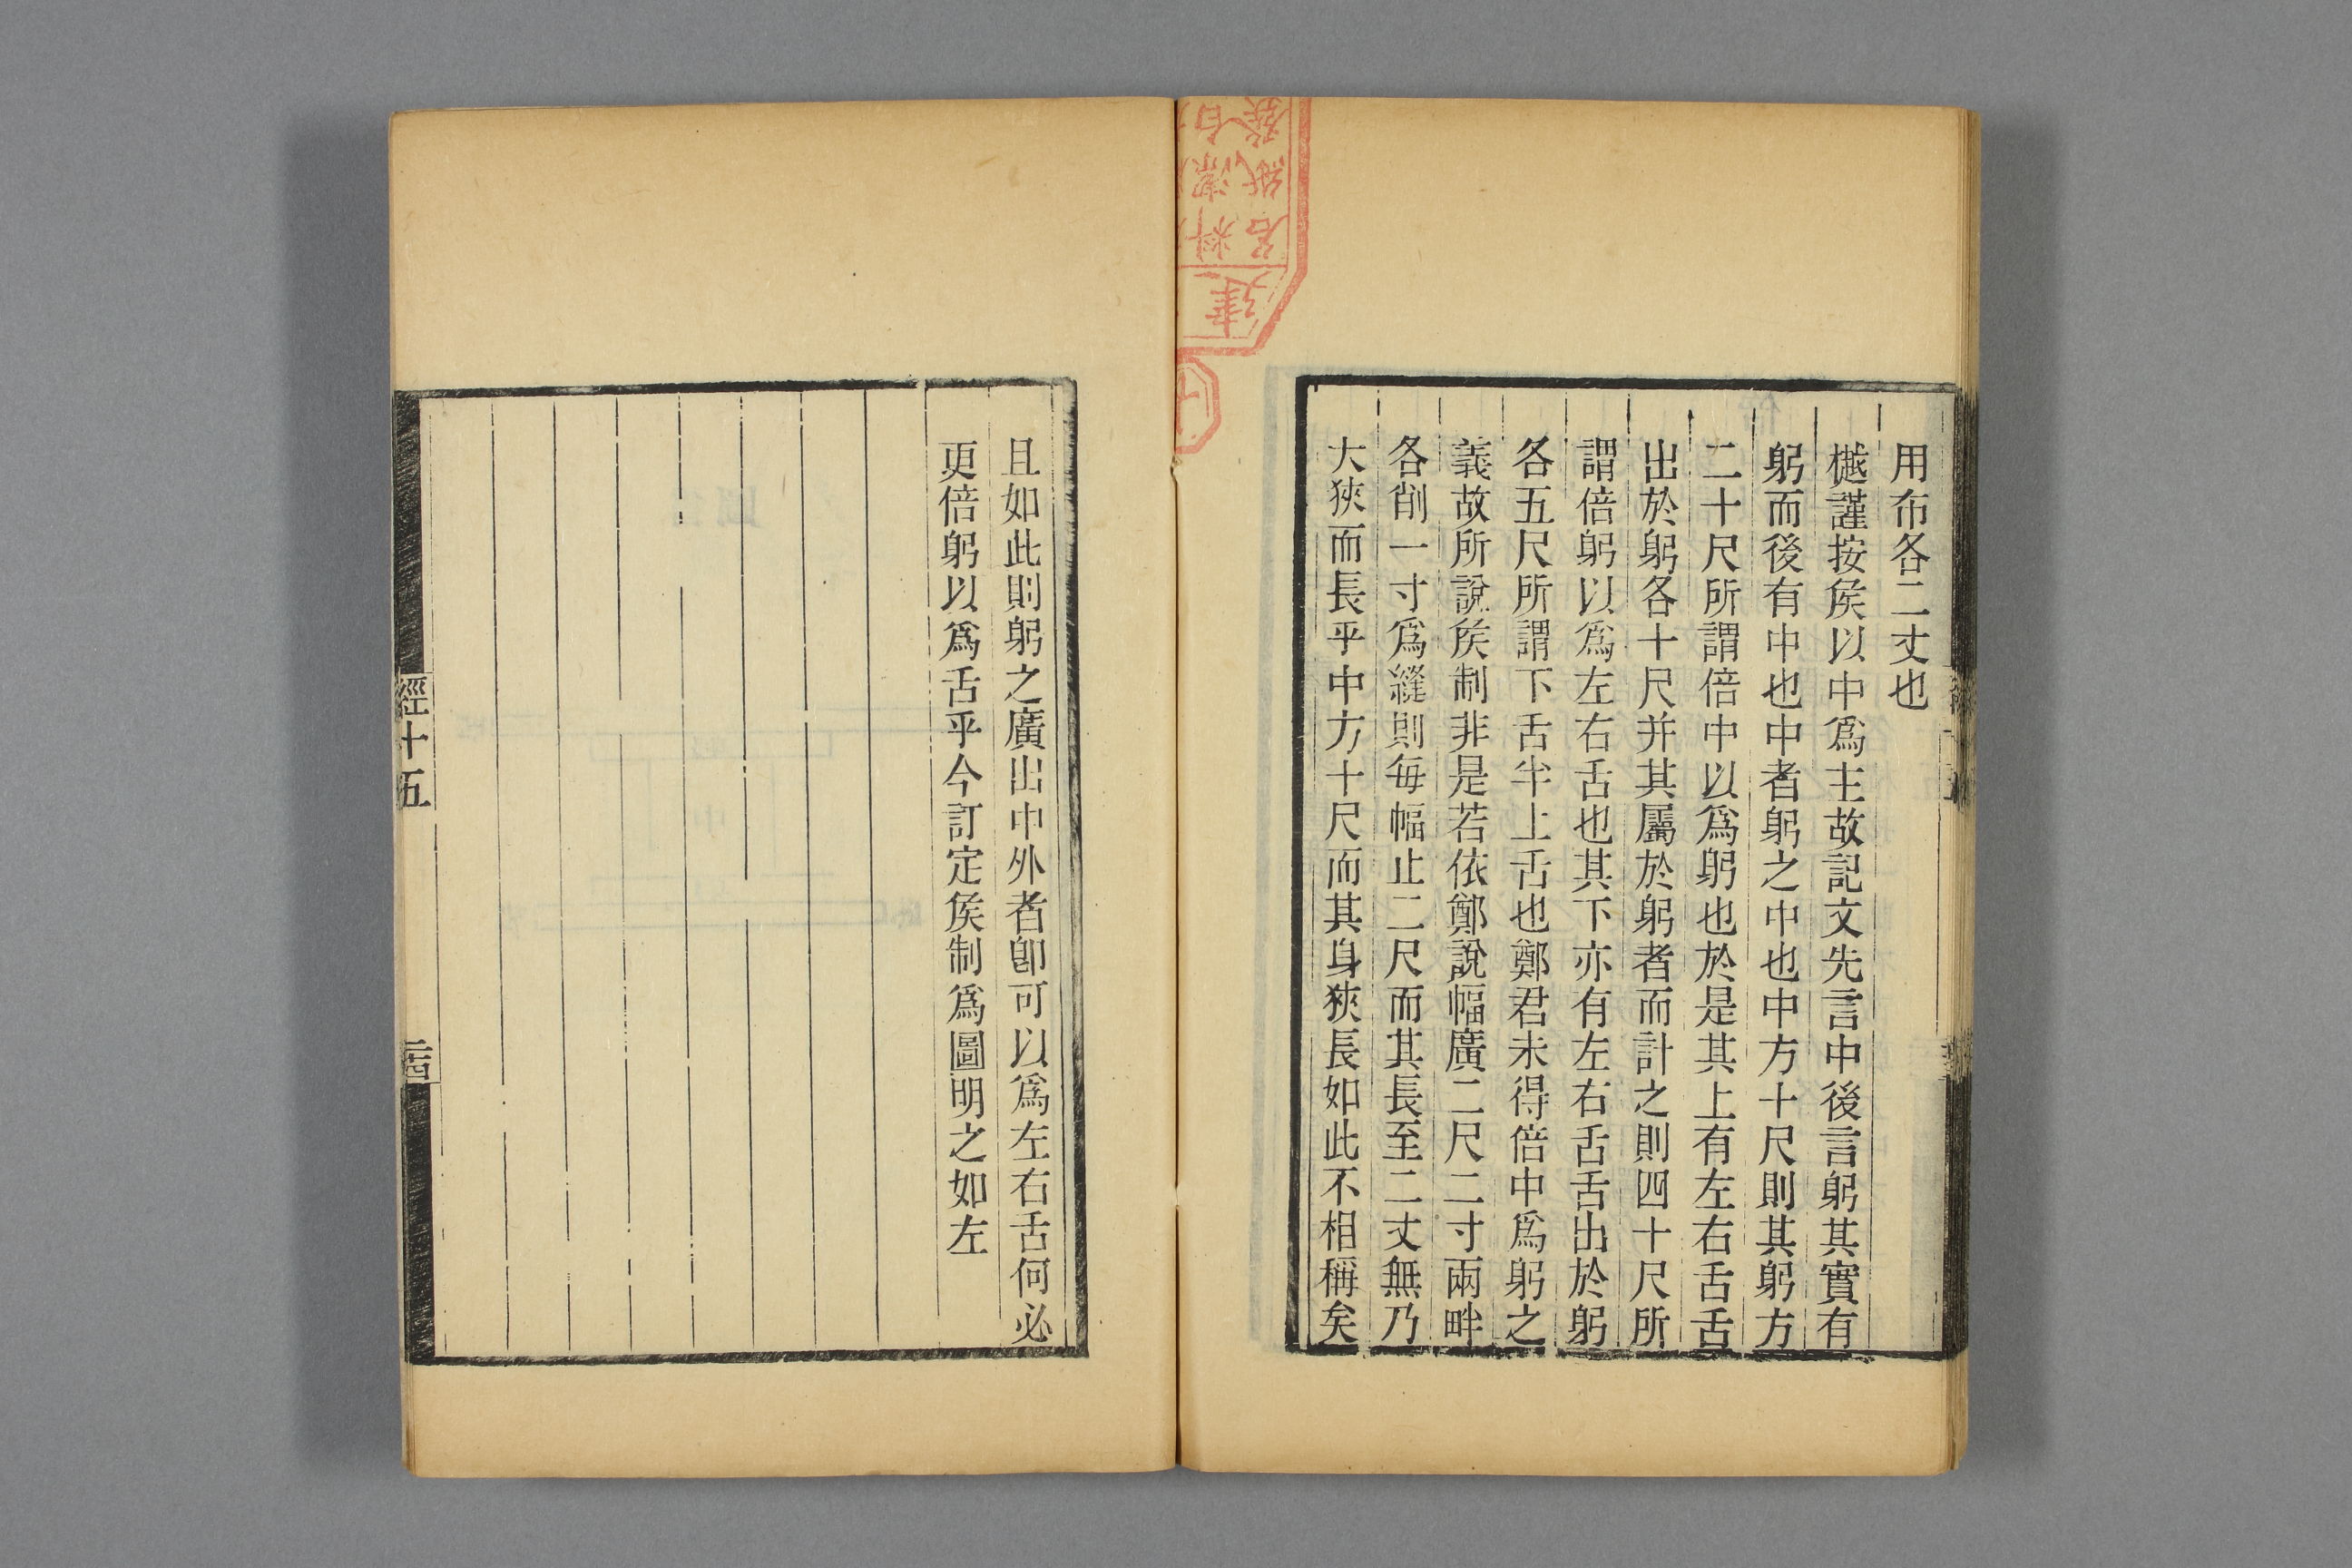 用布各二丈也
樾謹按矦以中爲主故記文先言中後言躬其實有
躬而後有中也中者躬之中也中方十尺則其躬方
二十尺所謂倍中以爲躬也於是其上有左右舌舌
出於躬各十尺并其屬於躬者而計之則四十尺所
謂倍躬以爲左右舌也其下亦有左右舌舌出於躬
各五尺所謂下舌半上舌也鄭君未得倍中爲躬之
義故所說矦制非是若依鄭說幅廣二尺二寸兩畔
各削一寸爲縫則每幅止二尺而其長至二丈無乃
大狹而長乎中方十尺而其身狹長如此不相稱矣
且如此則躬之廣出中外者卽可以爲左右舌何必
更倍躬以爲舌乎今訂定矦制爲圖明之如左
經十五
二十四